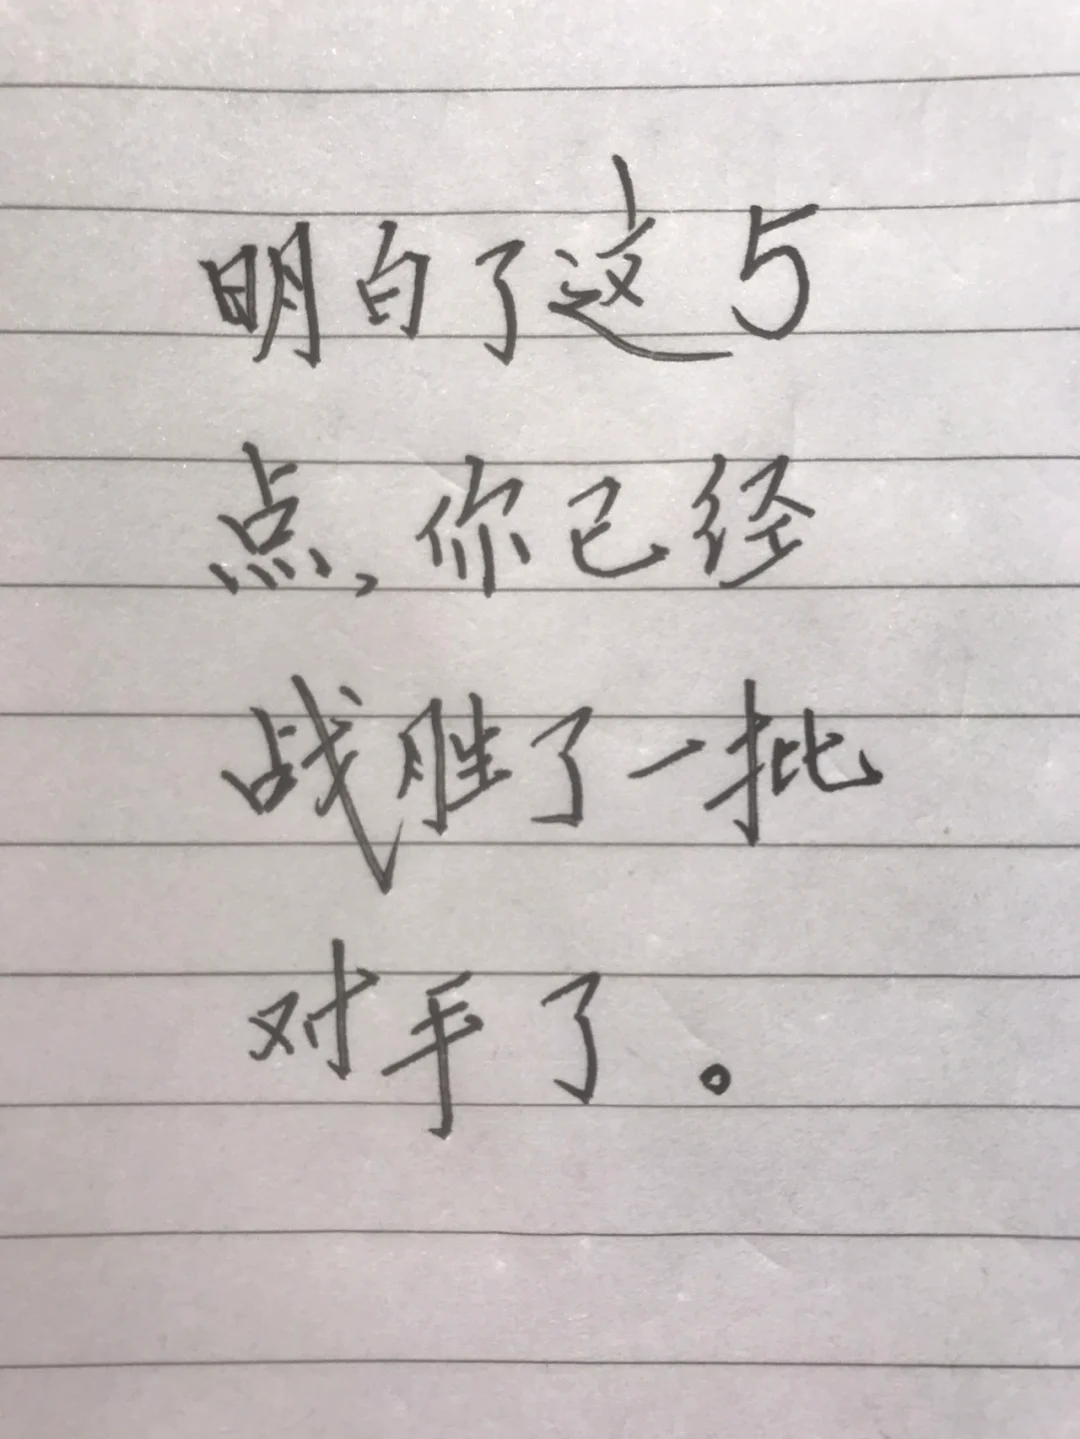 明白了这5
点,你已经
战胜了一批
对手了。